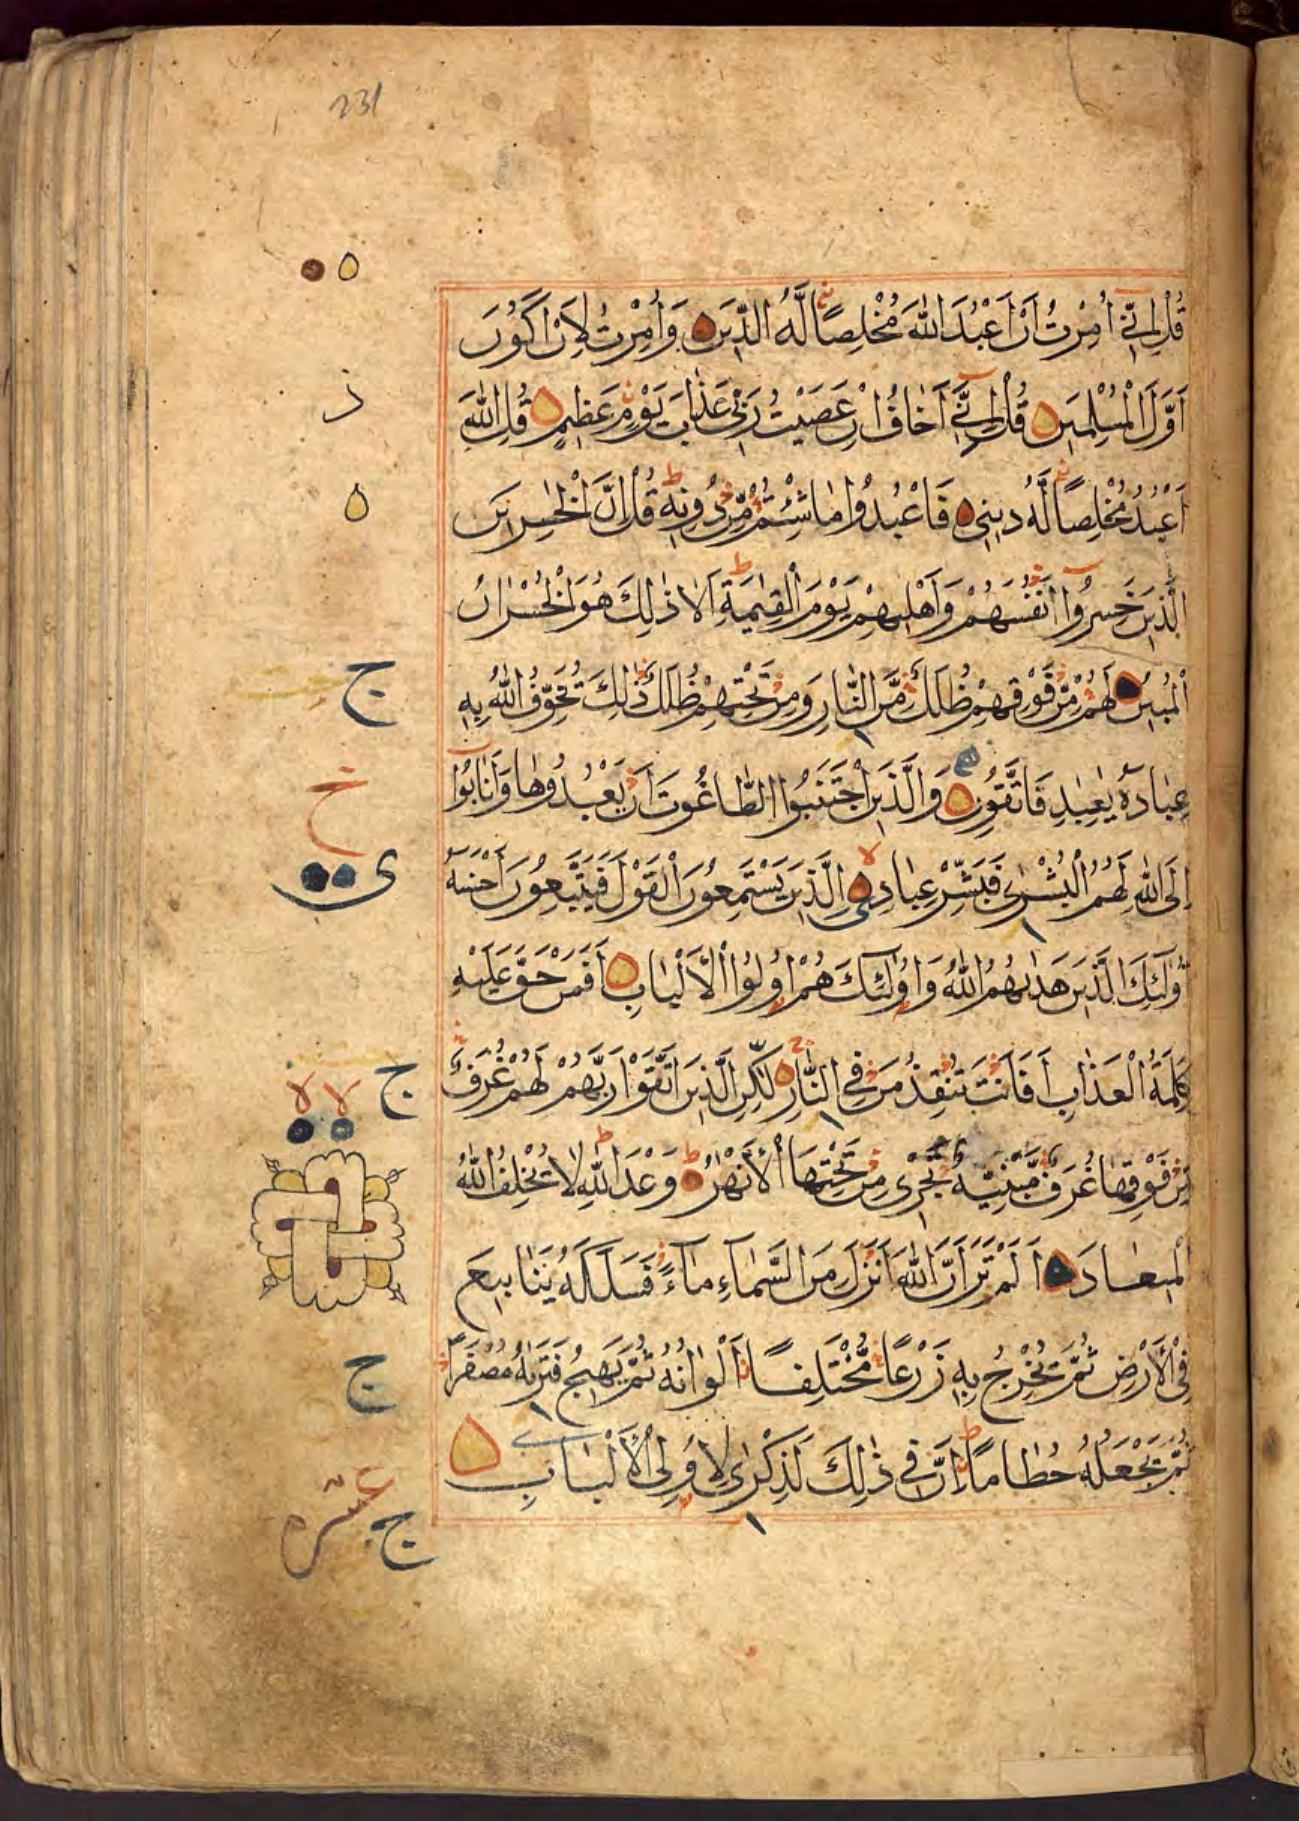 231
قُلْ اِنِّيٓ اُمِرْتُ اَنْ اَعْبُدَ اللّٰهَ مُخْلِصًا لَّهُ الدِّيْنَ وَاُمِرْتُ لِاَنْ اَكُوْنَ
اَوَّلَ الْمُسْلِمِيْنَ قُلْ اِنِّيٓ اَخَافُ اِنْ عَصَيْتُ رَبِّيْ عَذَابَ يَوْمٍ عَظِيْمٍ قُلِ اللّٰهَ
اَعْبُدُ مُخْلِصًا لَّهُ دِيْنِيْ فَاعْبُدُوْا مَا شِئْتُمْ مِّنْ دُوْنِهٖ قُلْ اِنَّ الْخٰسِرِيْنَ
الَّذِيْنَ خَسِرُوْٓا اَنْفُسَهُمْ وَاَهْلِيْهِمْ يَوْمَ الْقِيٰمَةِ اَلَا ذٰلِكَ هُوَ الْخُسْرَانُ
الْمُبِيْنُ لَهُمْ مِّنْ فَوْقِهِمْ ظُلَلٌ مِّنَ النَّارِ وَمِنْ تَحْتِهِمْ ظُلَلٌ ذٰلِكَ يُخَوِّفُ اللّٰهُ بِهٖ
عِبَادَهٗ يٰعِبَادِ فَاتَّقُوْنِ وَالَّذِيْنَ اجْتَنَبُوا الطَّاغُوْتَ اَنْ يَّعْبُدُوْهَا وَاَنَابُوْٓا
اِلَى اللّٰهِ لَهُمُ الْبُشْرٰى فَبَشِّرْ عِبَادِ الَّذِيْنَ يَسْتَمِعُوْنَ الْقَوْلَ فَيَتَّبِعُوْنَ اَحْسَنَهٗ
اُولٰٓئِكَ الَّذِيْنَ هَدٰىهُمُ اللّٰهُ وَاُولٰٓئِكَ هُمْ اُولُوا الْاَلْبَابِ اَفَمَنْ حَقَّ عَلَيْهِ
كَلِمَةُ الْعَذَابِ اَفَاَنْتَ تُنْقِذُ مَنْ فِي النَّارِ لٰكِنِ الَّذِيْنَ اتَّقَوْا رَبَّهُمْ لَهُمْ غُرَفٌ
مِّنْ فَوْقِهَا غُرَفٌ مَّبْنِيَّةٌ تَجْرِيْ مِنْ تَحْتِهَا الْاَنْهٰرُ وَعْدَ اللّٰهِ لَا يُخْلِفُ اللّٰهُ
الْمِيْعَادَ اَلَمْ تَرَ اَنَّ اللّٰهَ اَنْزَلَ مِنَ السَّمَآءِ مَآءً فَسَلَكَهٗ يَنَابِيْعَ
فِي الْاَرْضِ ثُمَّ يُخْرِجُ بِهٖ زَرْعًا مُّخْتَلِفًا اَلْوَانُهٗ ثُمَّ يَهِيْجُ فَتَرٰىهُ مُصْفَرًّا
ثُمَّ يَجْعَلُهٗ حُطَامًا اِنَّ فِيْ ذٰلِكَ لَذِكْرٰى لِاُولِي الْاَلْبَابِ
ذ
ج
خ
ى
ج
لا لا
ج
ج
عشره